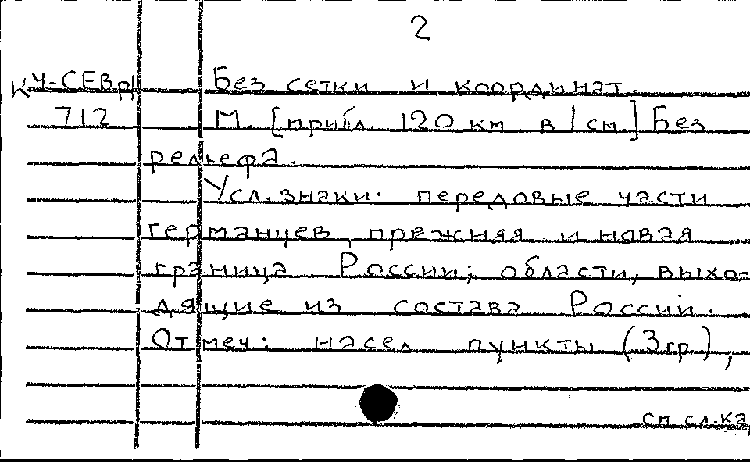 2
КЧ-СЕВР Без сетки и координат.
712 М. [прибл. 120 км в 1 см] Без
рельефа.
Усл. знаки: передовые части
германцев, прежняя и новая
граница России; области, выхо-
дящие из состава России.
Отмеч: насел пункты (3гр),
см сл. ка